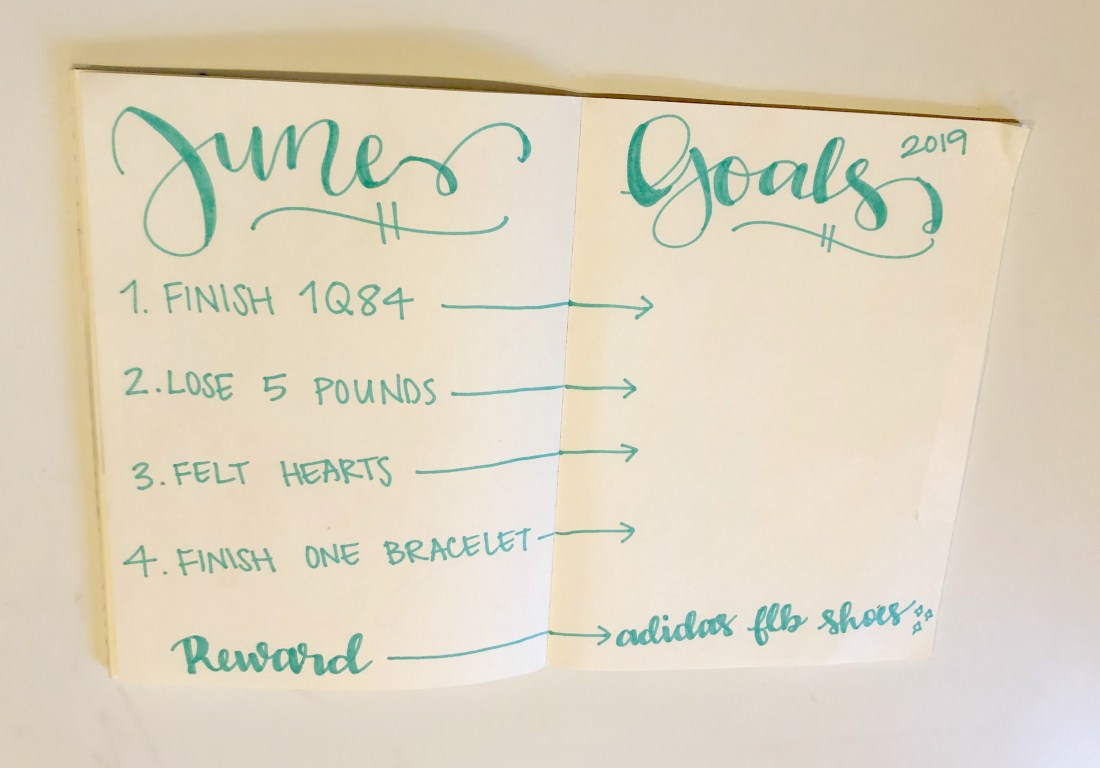 June Goals 2019
1. FINISH 1Q84
2. LOSE 5 POUNDS
3. FELT HEARTS
4. FINISH ONE BRACELET
Reward adidas flb shoes